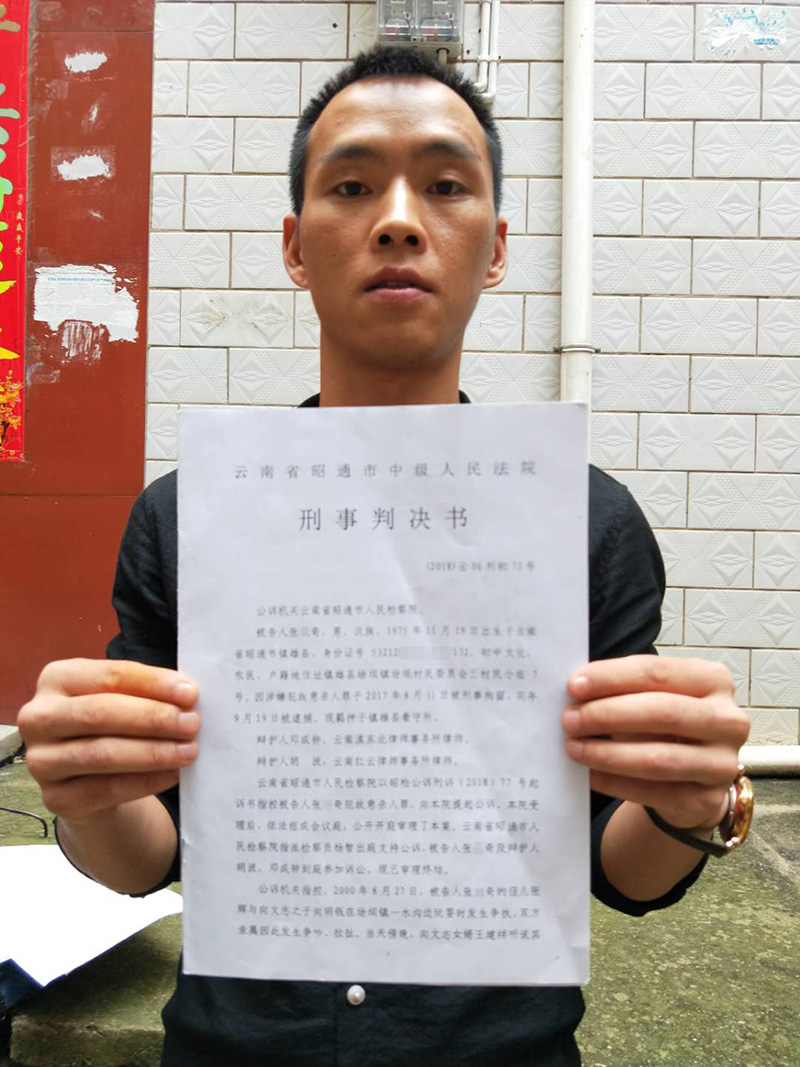 云南省昭通市中级人民法院
刑事判决书
(2018)云06刑初75号
公诉机关云南省昭通市人民检察院。
被告人张 奇，男，汉族，1975年11月19日出生于云南
省昭通市镇雄县，身份证号53212 132，初中文化，
农民，户籍地住址镇雄县场坝镇场坝村民委员会三村民小组7
号。因涉嫌犯故意杀人罪于2017年8月31日被刑事拘留，同年
9月19日被逮捕。现羁押于镇雄县看守所。
辩护人邓成钟，云南滇东北律师事务所律师。
辩护人胡 波，云南红云律师事务所律师。
云南省昭通市人民检察院以昭检公诉刑诉（2018）77号起
诉书指控被告人张 奇犯故意杀人罪，向本院提起公诉。本院受
理后，依法组成合议庭，公开开庭审理了本案。云南省昭通市人
民检察院指派检察员杨智出庭支持公诉，被告人张 奇及辩护人
胡波、邓成钟到庭参加诉讼。现已审理终结。
公诉机关指控，2000年8月27日，被告人张 奇的侄儿张
辉与向文志之子向明钱在场坝镇一水沟边玩耍时发生争执，双方
亲属因此发生争吵、拉扯。当天傍晚，向文志女婿王建祥听说其
岁岁平安